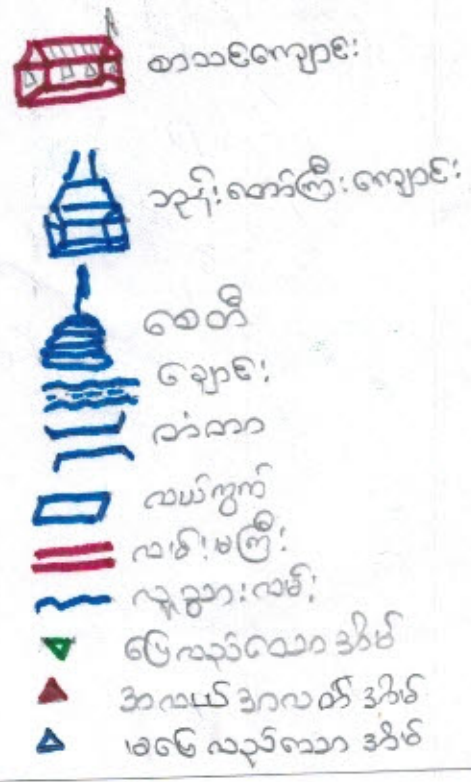 စာသင်ကျောင်း
ဘုန်းတော်ကြီးကျောင်း
စေတီ
ချောင်း
တံတား
လယ်ကွက်
လမ်းမကြီး
လူသွားလမ်း
ပြေလည်သောအိမ်
အလယ်အလတ်အိမ်
မပြေလည်သောအိမ်